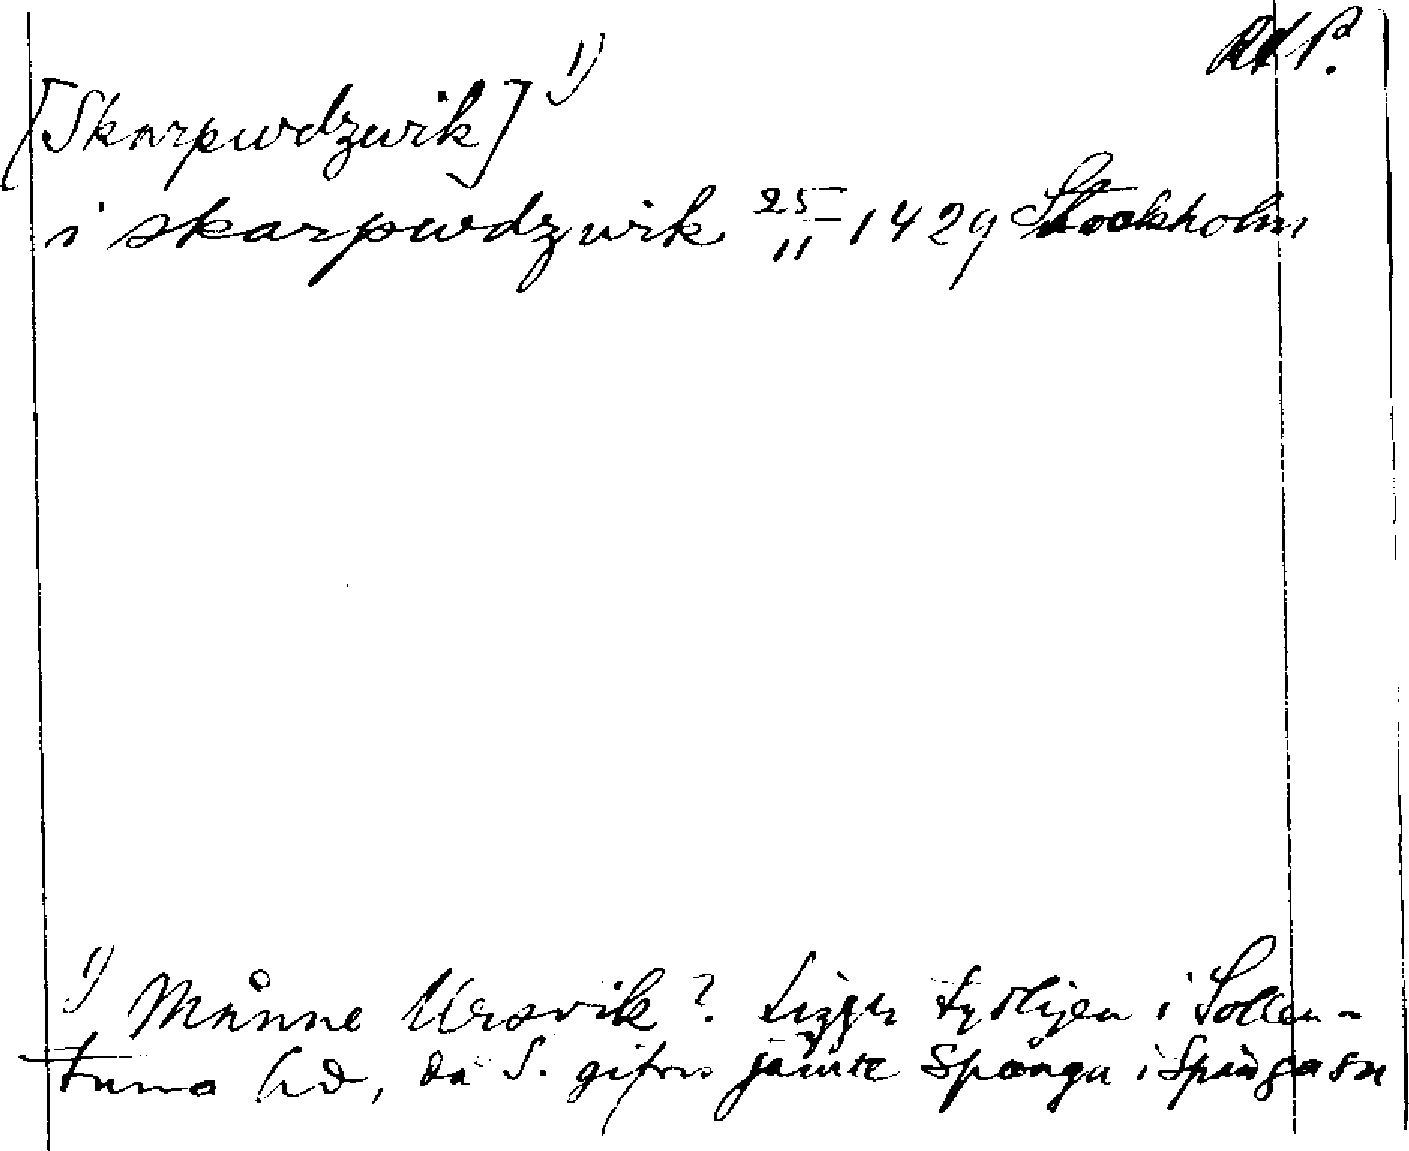 RAP.
[Skarpwdzwik] 1)
i skarpwdzwik 25/11 1429 Stockholm
1) Månne Ursvik? Ligger tydligen i Sollen-
tuna hd, då S. gifves jämte Spånga i Spånga sn